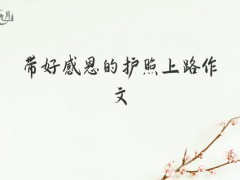 带好感恩的护照上路作
文